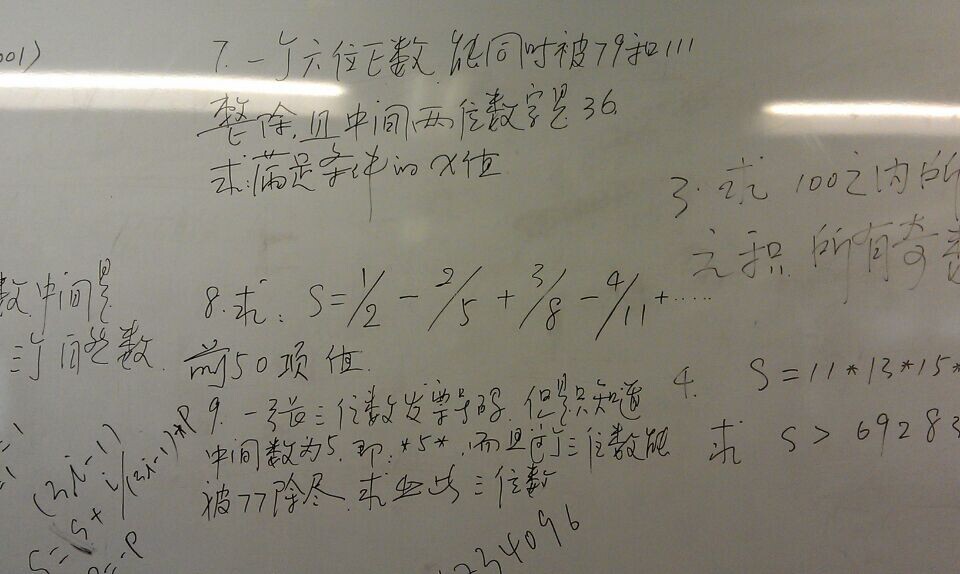 001)
7. 一个六位正数 能同时被79和111
整除,且中间两位数字是36
求:满足条件的x值
3. 求 100之内所
之积 所有奇数
数中间是
三个 间 数
8. 求: S=1/2 - 2/5 + 3/8 - 4/11 + ……
前50项值
9. 一 三位数发票号码,但是只知道
中间数为5,即:*5*,而且这个三位数能
被77除尽,求出此三位数
4. S=11*13*15*
求 S> 69283
(2i-1)
i/(2i-1)*P
S=S+
234096